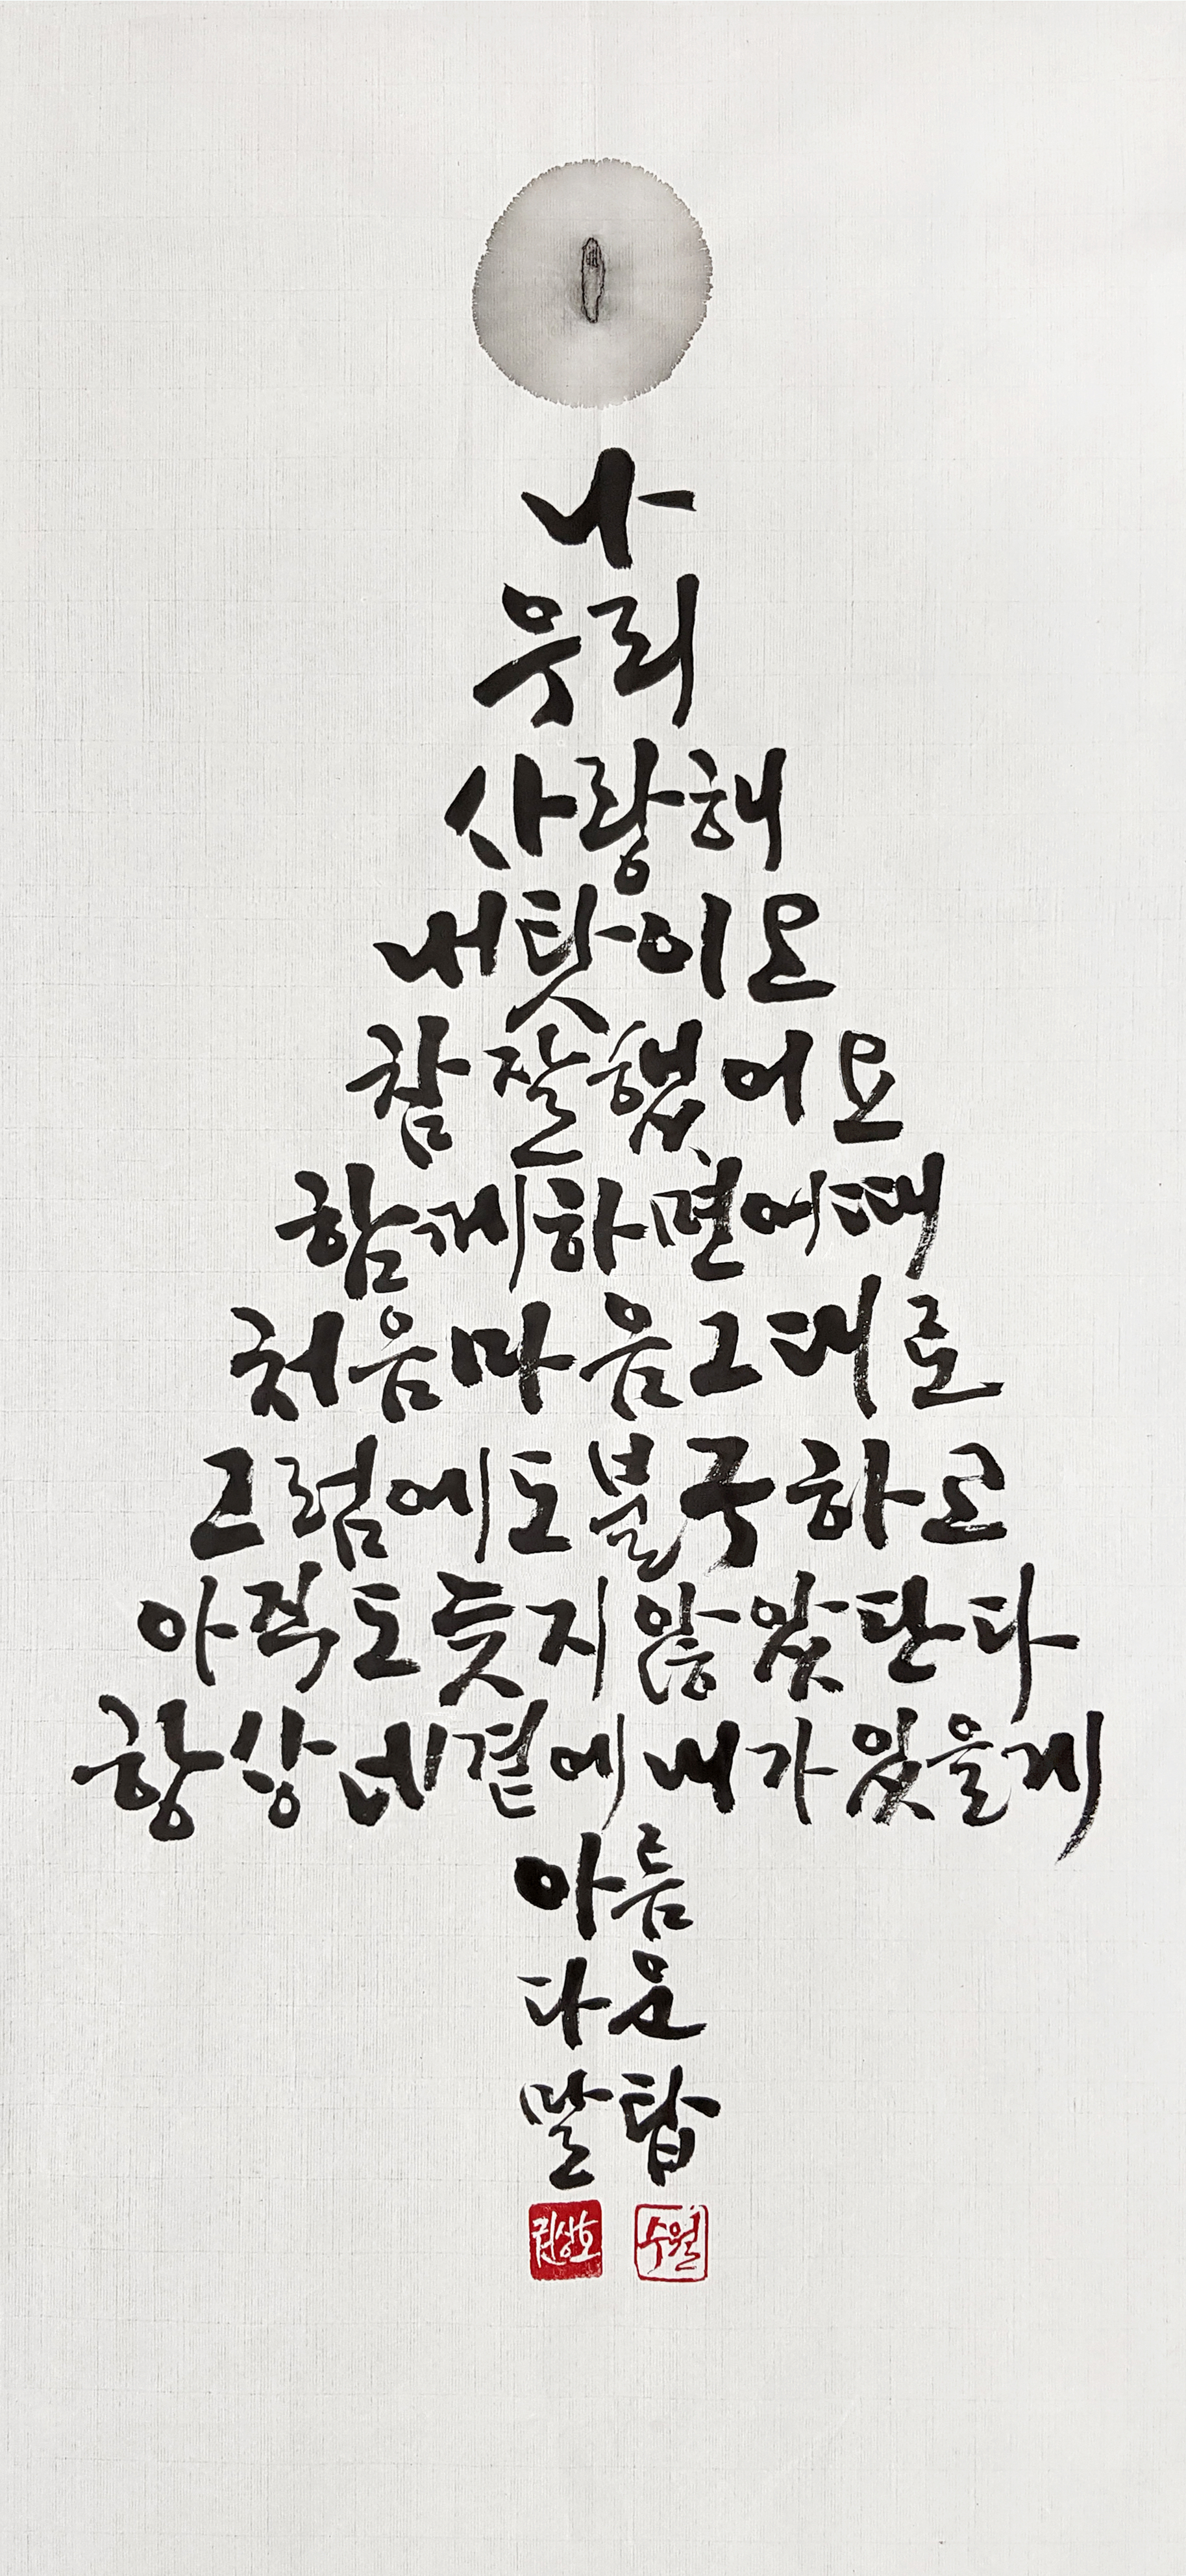 나
우리
사랑해
내탓이오
참잘했어요
함께하면어때
처음마음그대로
그럼에도불구하고
아직도늦지않았단다
항상네곁에내가있을게
아름
다운
말탑
권상호 수월